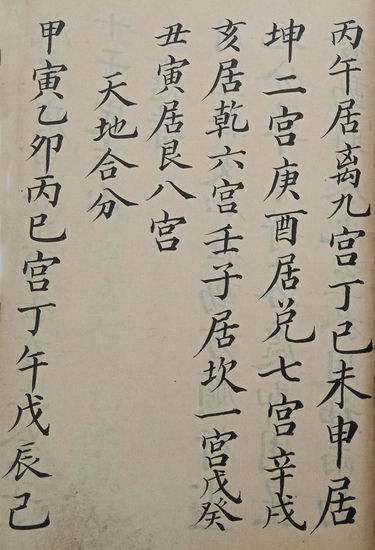 丙午居离九宫丁已未申居
坤二宫庚酉居兑七宫辛戌
亥居乾六宫壬子居坎一宫戊癸
丑寅居艮八宫
天地合分
甲寅乙卯丙巳宫丁午戊辰己